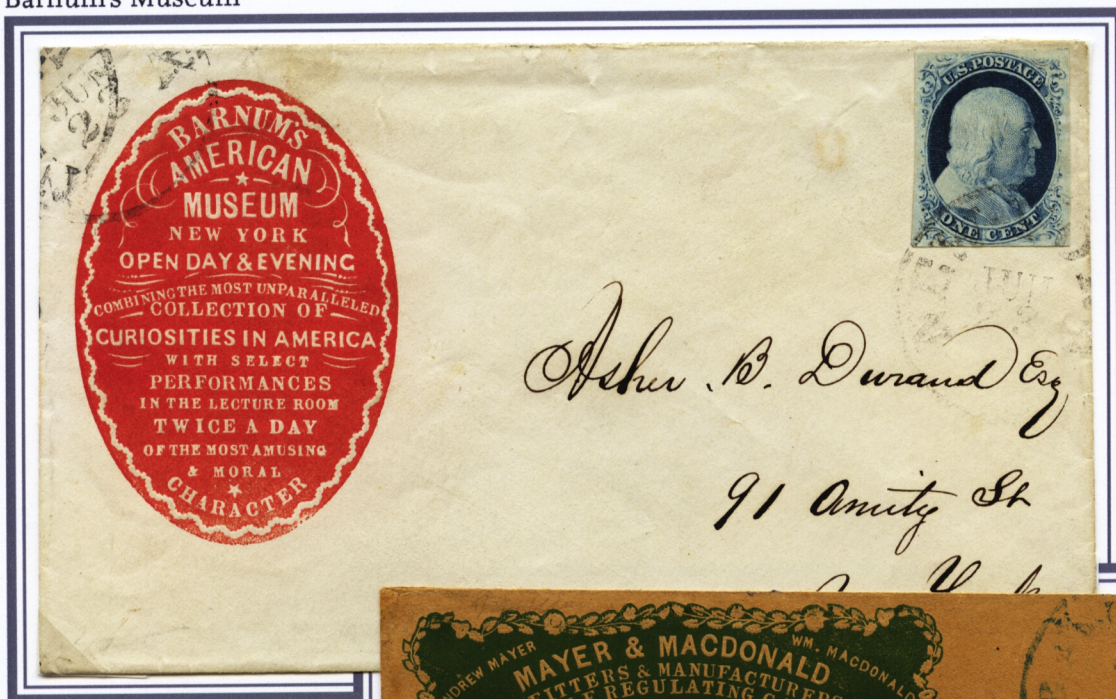 Barnum's Museum
BARNUM'S
AMERICAN
MUSEUM
NEW YORK
OPEN DAY & EVENING
COMBINING THE MOST UNPARALLELED
COLLECTION OF
CURIOSITIES IN AMERICA
WITH SELECT
PERFORMANCES
IN THE LECTURE ROOM
TWICE A DAY
OF THE MOST AMUSING
& MORAL
CHARACTER
JUL
2
U.S. POSTAGE
ONE CENT
JUL
2
Asher . B. Durand Esq
91 Amity St
York
ANDREW MAYER
WM. MACDONALD
MAYER & MACDONALD
FITTERS & MANUFACTURERS
REGULATING